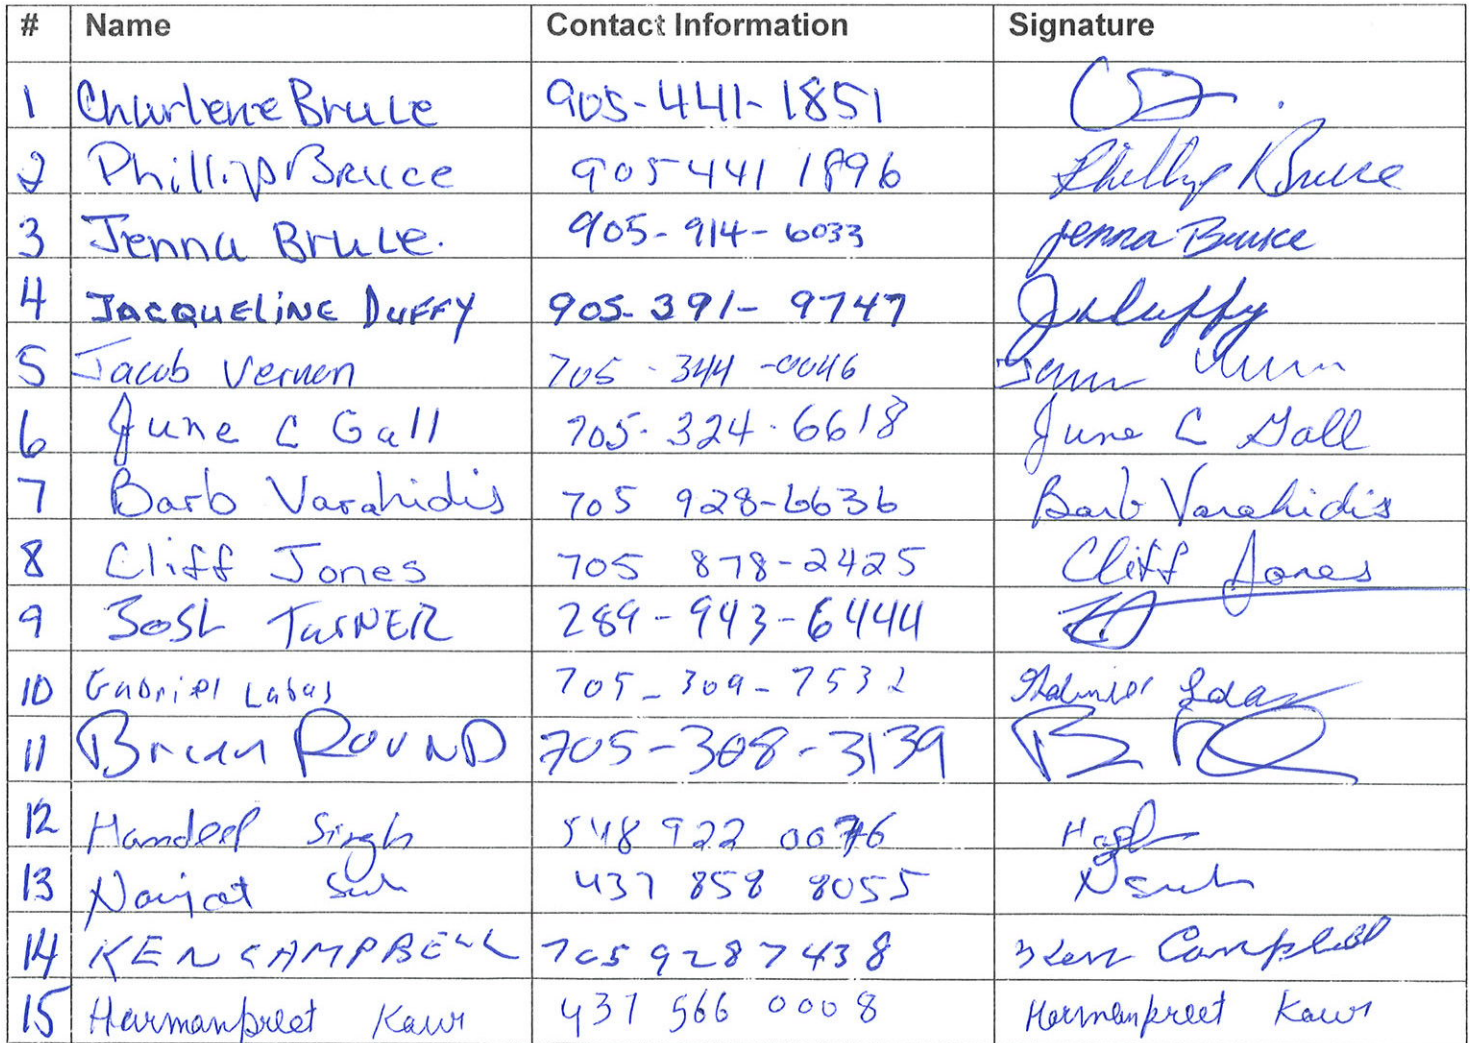 # Name Contact Information Signature
1 Charlene Bruce 905-441-1851
2 Phillip Bruce 905 441 1896 Phillip Bruce
3 Jenna Bruce. 905-914-6033 Jenna Bruce
4 JACQUELINE DUFFY 905-391-9747 JDuffy
5 Jacob Vernon 705-344-0046
6 June C Gall 705-324-6618 June C Gall
7 Barb Varahidis 705 928-6636 Barb Varahidis
8 Cliff Jones 705 878-2425 Cliff Jones
9 JOSH TURNER 289-943-6444
10 Gabriel Labas 705-309-7532
11 Brian ROUND 705-308-3139
12 Singh 548 922 0076
13 437 858 8055
14 KEN CAMPBELL 705 928 7438 Ken Campbell
15 Harmanpreet Kaur 437 566 0008 Harmanpreet Kaur